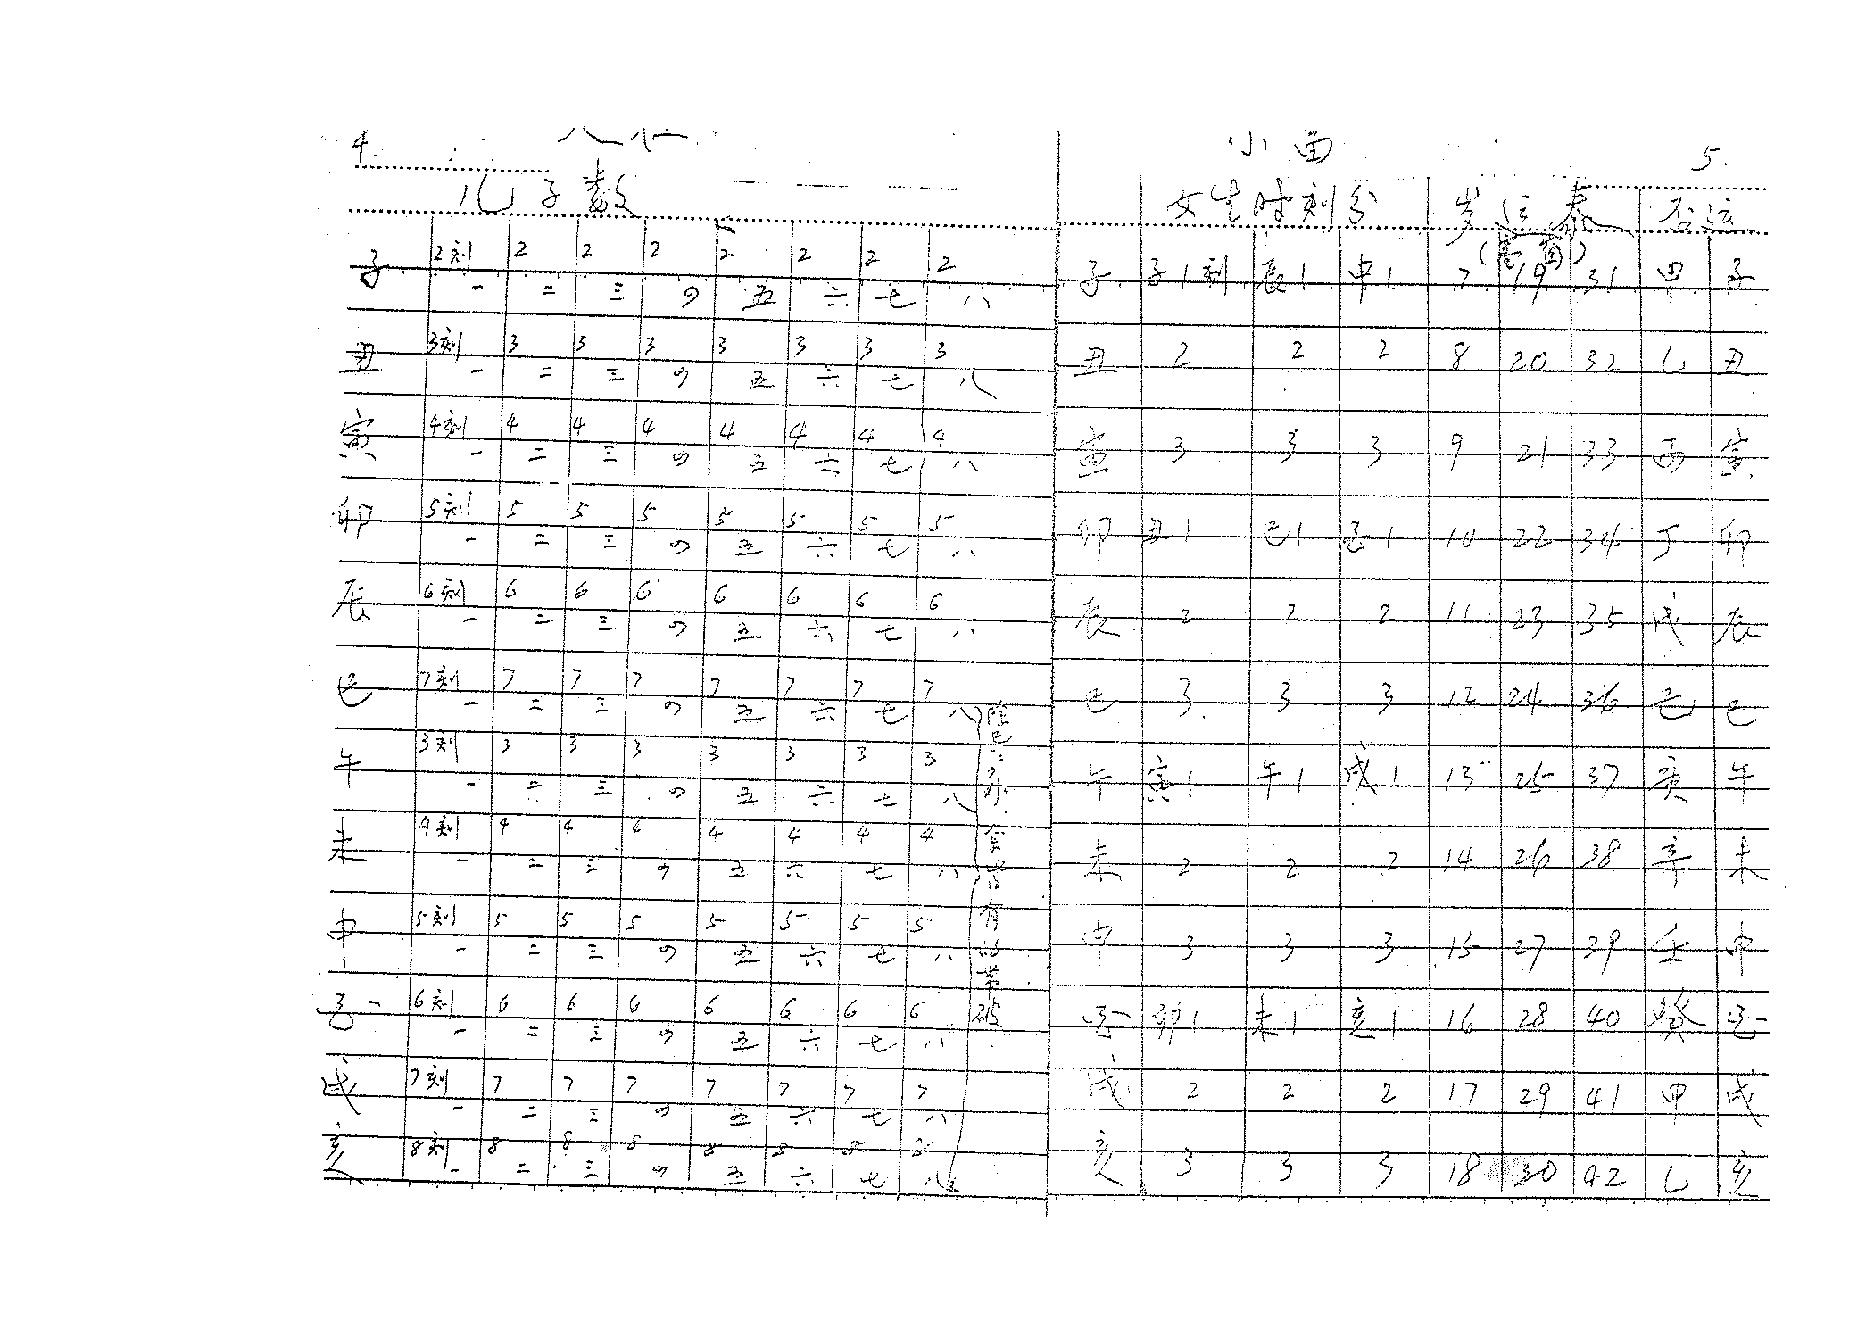 4
儿子数
子 2刻一 2二 2三 2四 2五 2六 2七 2八
丑 3刻一 3二 3三 3四 3五 3六 3七 3八
寅 4刻一 4二 4三 4四 4五 4六 4七 4八
卯 5刻一 5二 5三 5四 5五 5六 5七 5八
辰 6刻一 6二 6三 6四 6五 6六 6七 6八
巳 7刻一 7二 7三 7四 7五 7六 7七 7八
午 3刻一 3二 3三 3四 3五 3六 3七 3八
未 4刻一 4二 4三 4四 4五 4六 4七 4八
申 5刻一 5二 5三 5四 5五 5六 5七 5八
酉 6刻一 6二 6三 6四 6五 6六 6七 6八
戌 7刻一 7二 7三 7四 7五 7六 7七 7八
亥 8刻一 8二 8三 8四 8五 8六 8七 8八
小 5
女生时刻分 岁运泰 否运
子 子1刻 辰1 申1 7 19 31 甲 子
丑 2 2 2 8 20 32 乙 丑
寅 3 3 3 9 21 33 丙 寅
卯 丑1 巳1 酉1 10 22 34 丁 卯
辰 2 2 2 11 23 35 戊 辰
巳 3 3 3 12 24 36 己 巳
午 寅1 午1 戌1 13 25 37 庚 午
未 2 2 2 14 26 38 辛 未
申 3 3 3 15 27 39 壬 申
酉 卯1 未1 亥1 16 28 40 癸 酉
戌 2 2 2 17 29 41 甲 戌
亥 3 3 3 18 30 42 乙 亥